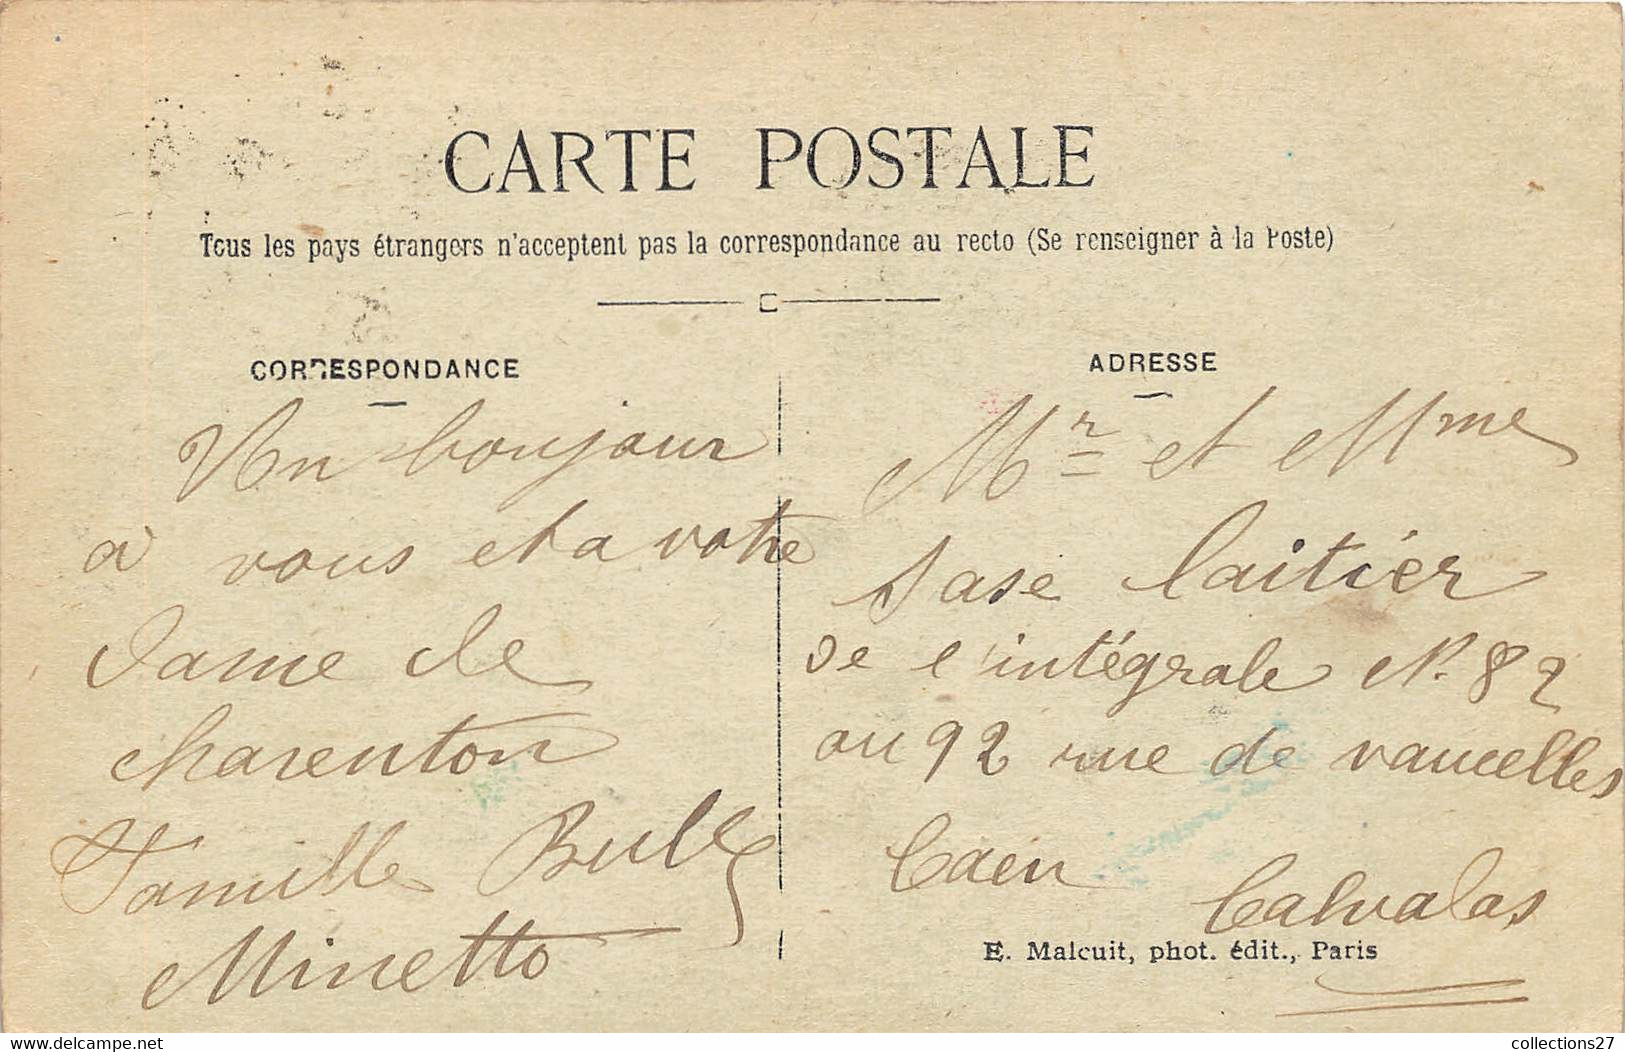 CARTE POSTALE
Tous les pays étrangers n'acceptent pas la correspondance au recto (Se renseigner à la Poste)
CORRESPONDANCE
Un bonjour
a vous et a votre
Dame de
charenton
famille Bulle
Minetto
ADRESSE
Mr et Mme
Jase laitier
de l'intégrale N. 82
ou 92 rue de vaucelles
Caen
Calvalas
E. Malcuit, phot. édit., Paris
collections27